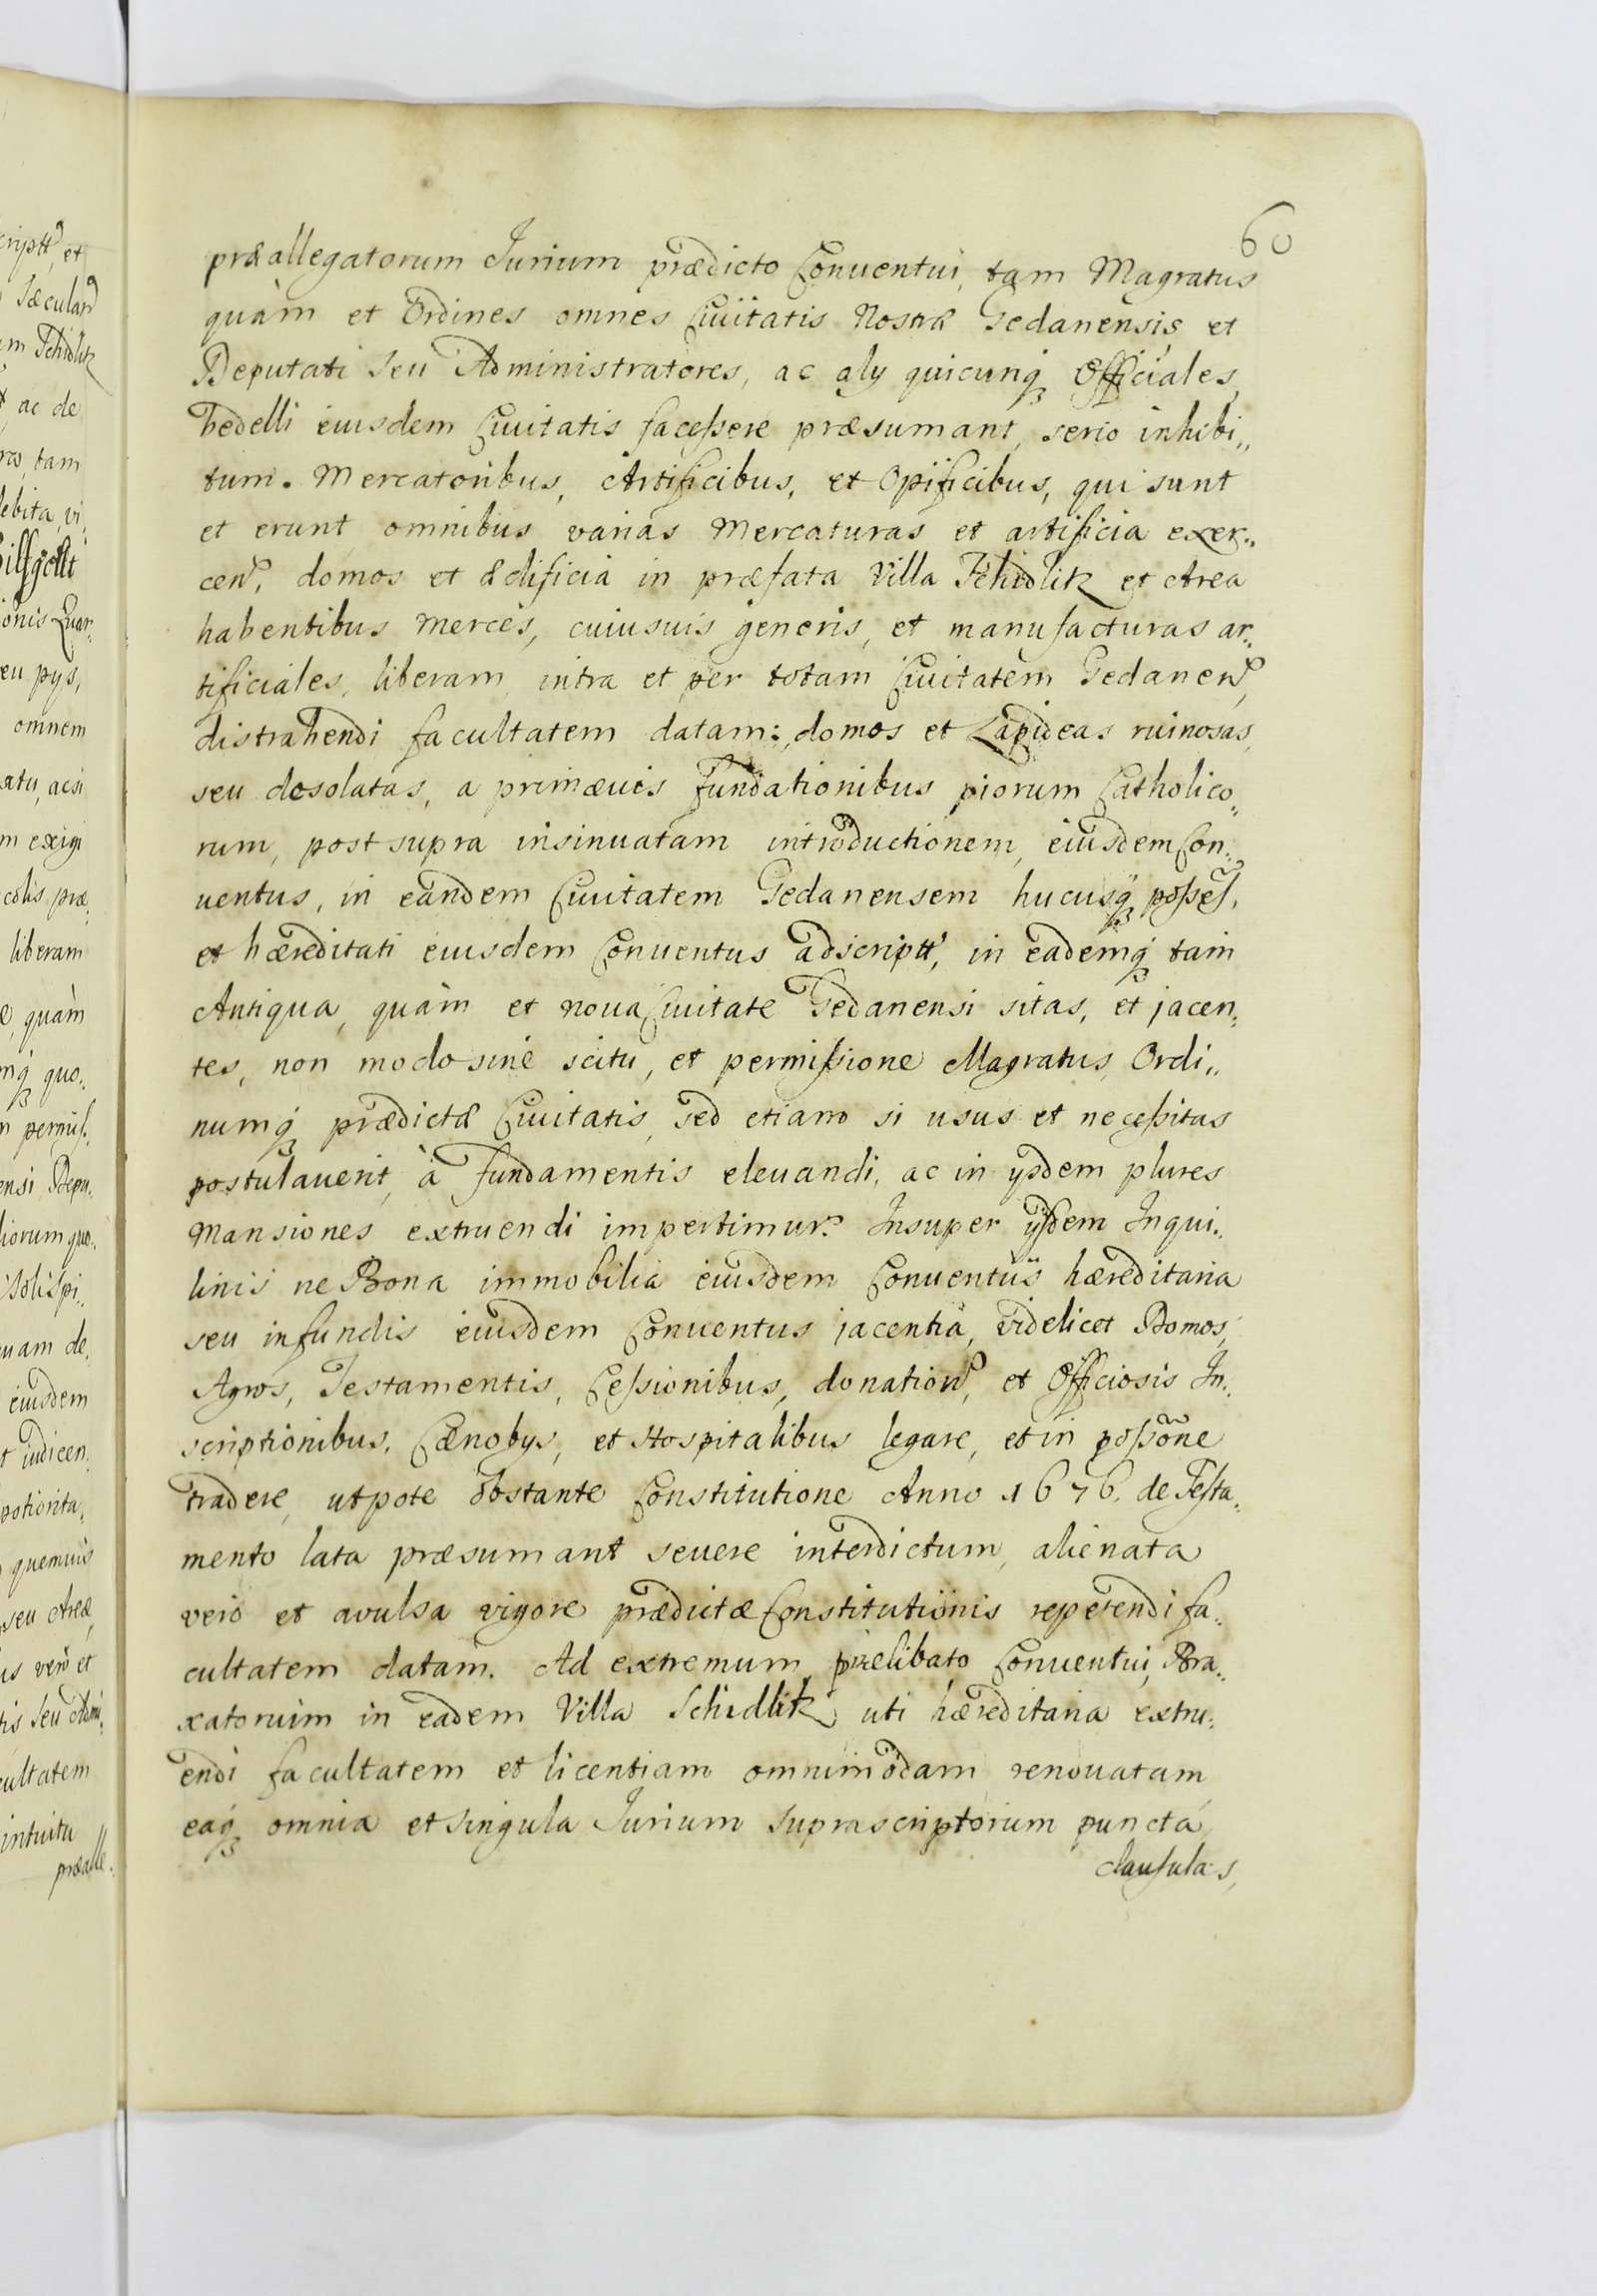 60
præallegatorum Jurium prædicto Conuentui, tam Magratus
quàm et Ordines omnes Ciuitatis Nostræ Gedanensis et
Deputati seu Administratores, ac alÿ quicunq́ʒ Officiales,
bedelli eiusdem Ciuitatis facessere præsumant, serio inhibi„
tum. Mercatoribus, Artificibus, et Opificibus, qui sunt
et erunt, omnibus varias Mercaturas et artificia exer„
cen̄, domos et ædificia in præfata Villa Schidlitz et Area
habentibus merces, cuiusuis generis, et manufacturas ar„
tificiales, liberam intra et per totam Ciuitatem Gedanen̄,
distrahendi facultatem datam: domos et Lapideas ruinosas
seu desolatas, a primæuis fundationibus piorum Catholico„
rum, post supra insinuatam introductionem, eiusdem Con„
uentus, in eandem Ciuitatem Gedanensem hucusq́ʒ possess̃,
et hæreditati eiusdem Conuentus adscriptt, in eademq́ʒ tam
Antiqua, quàm et noua Ciuitate Gedanensi sitas, et jacen„
tes, non modo sine scitu, et permissione Magratus, Ordi„
numq́ʒ prædictæ Ciuitatis, sed etiam si usus et necessitas
postulauerit, à fundamentis eleuandi, ac in ÿsdem plures
Mansiones extruendi impertimur. Insuper ÿsdem Inqui„
linis ne Bona immobilia eiusdem Conuentus hæreditaria
seu in fundis eiusdem Conuentus jacentia, videlicet Domos,
Agros, Testamentis, Cessionibus, donation̄, et Officiosis In„
scriptionibus, Cænobÿs, et Hospitalibus legare, et in possõne
tradere, utpote obstante Constitutione Anno 1676. de Testa„
mento lata præsumant seuere interdictum, alienata
vero et avulsa vigore prædictæ Constitutionis repetendi fa„
cultatem datam. Ad extremum prælibato Conuentui, Bra„
xatorium in eadem Villa Schidlitz uti hæreditaria extru„
endi facultatem et licentiam omnimodam renouatam
eaq́ʒ omnia et singula Jurium suprascriptorum puncta,
clausulas,